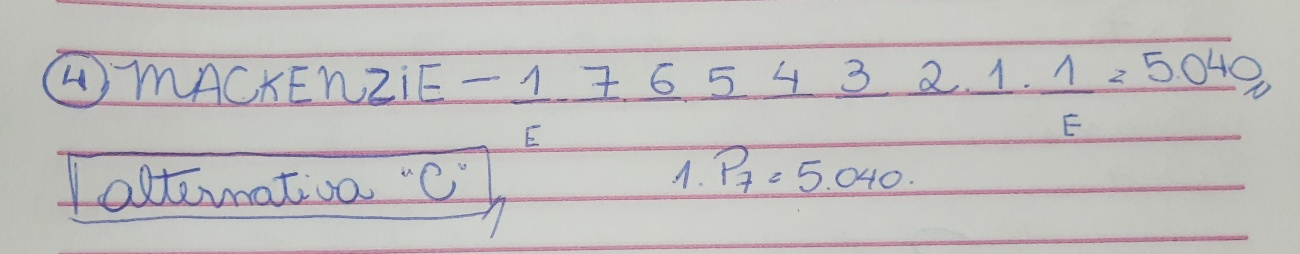 4 MACKENZIE - 1 . 7 . 6 . 5 . 4 . 3 . 2 . 1 . 1 = 5.040
E E
alternativa "C" 1. P7 = 5.040.